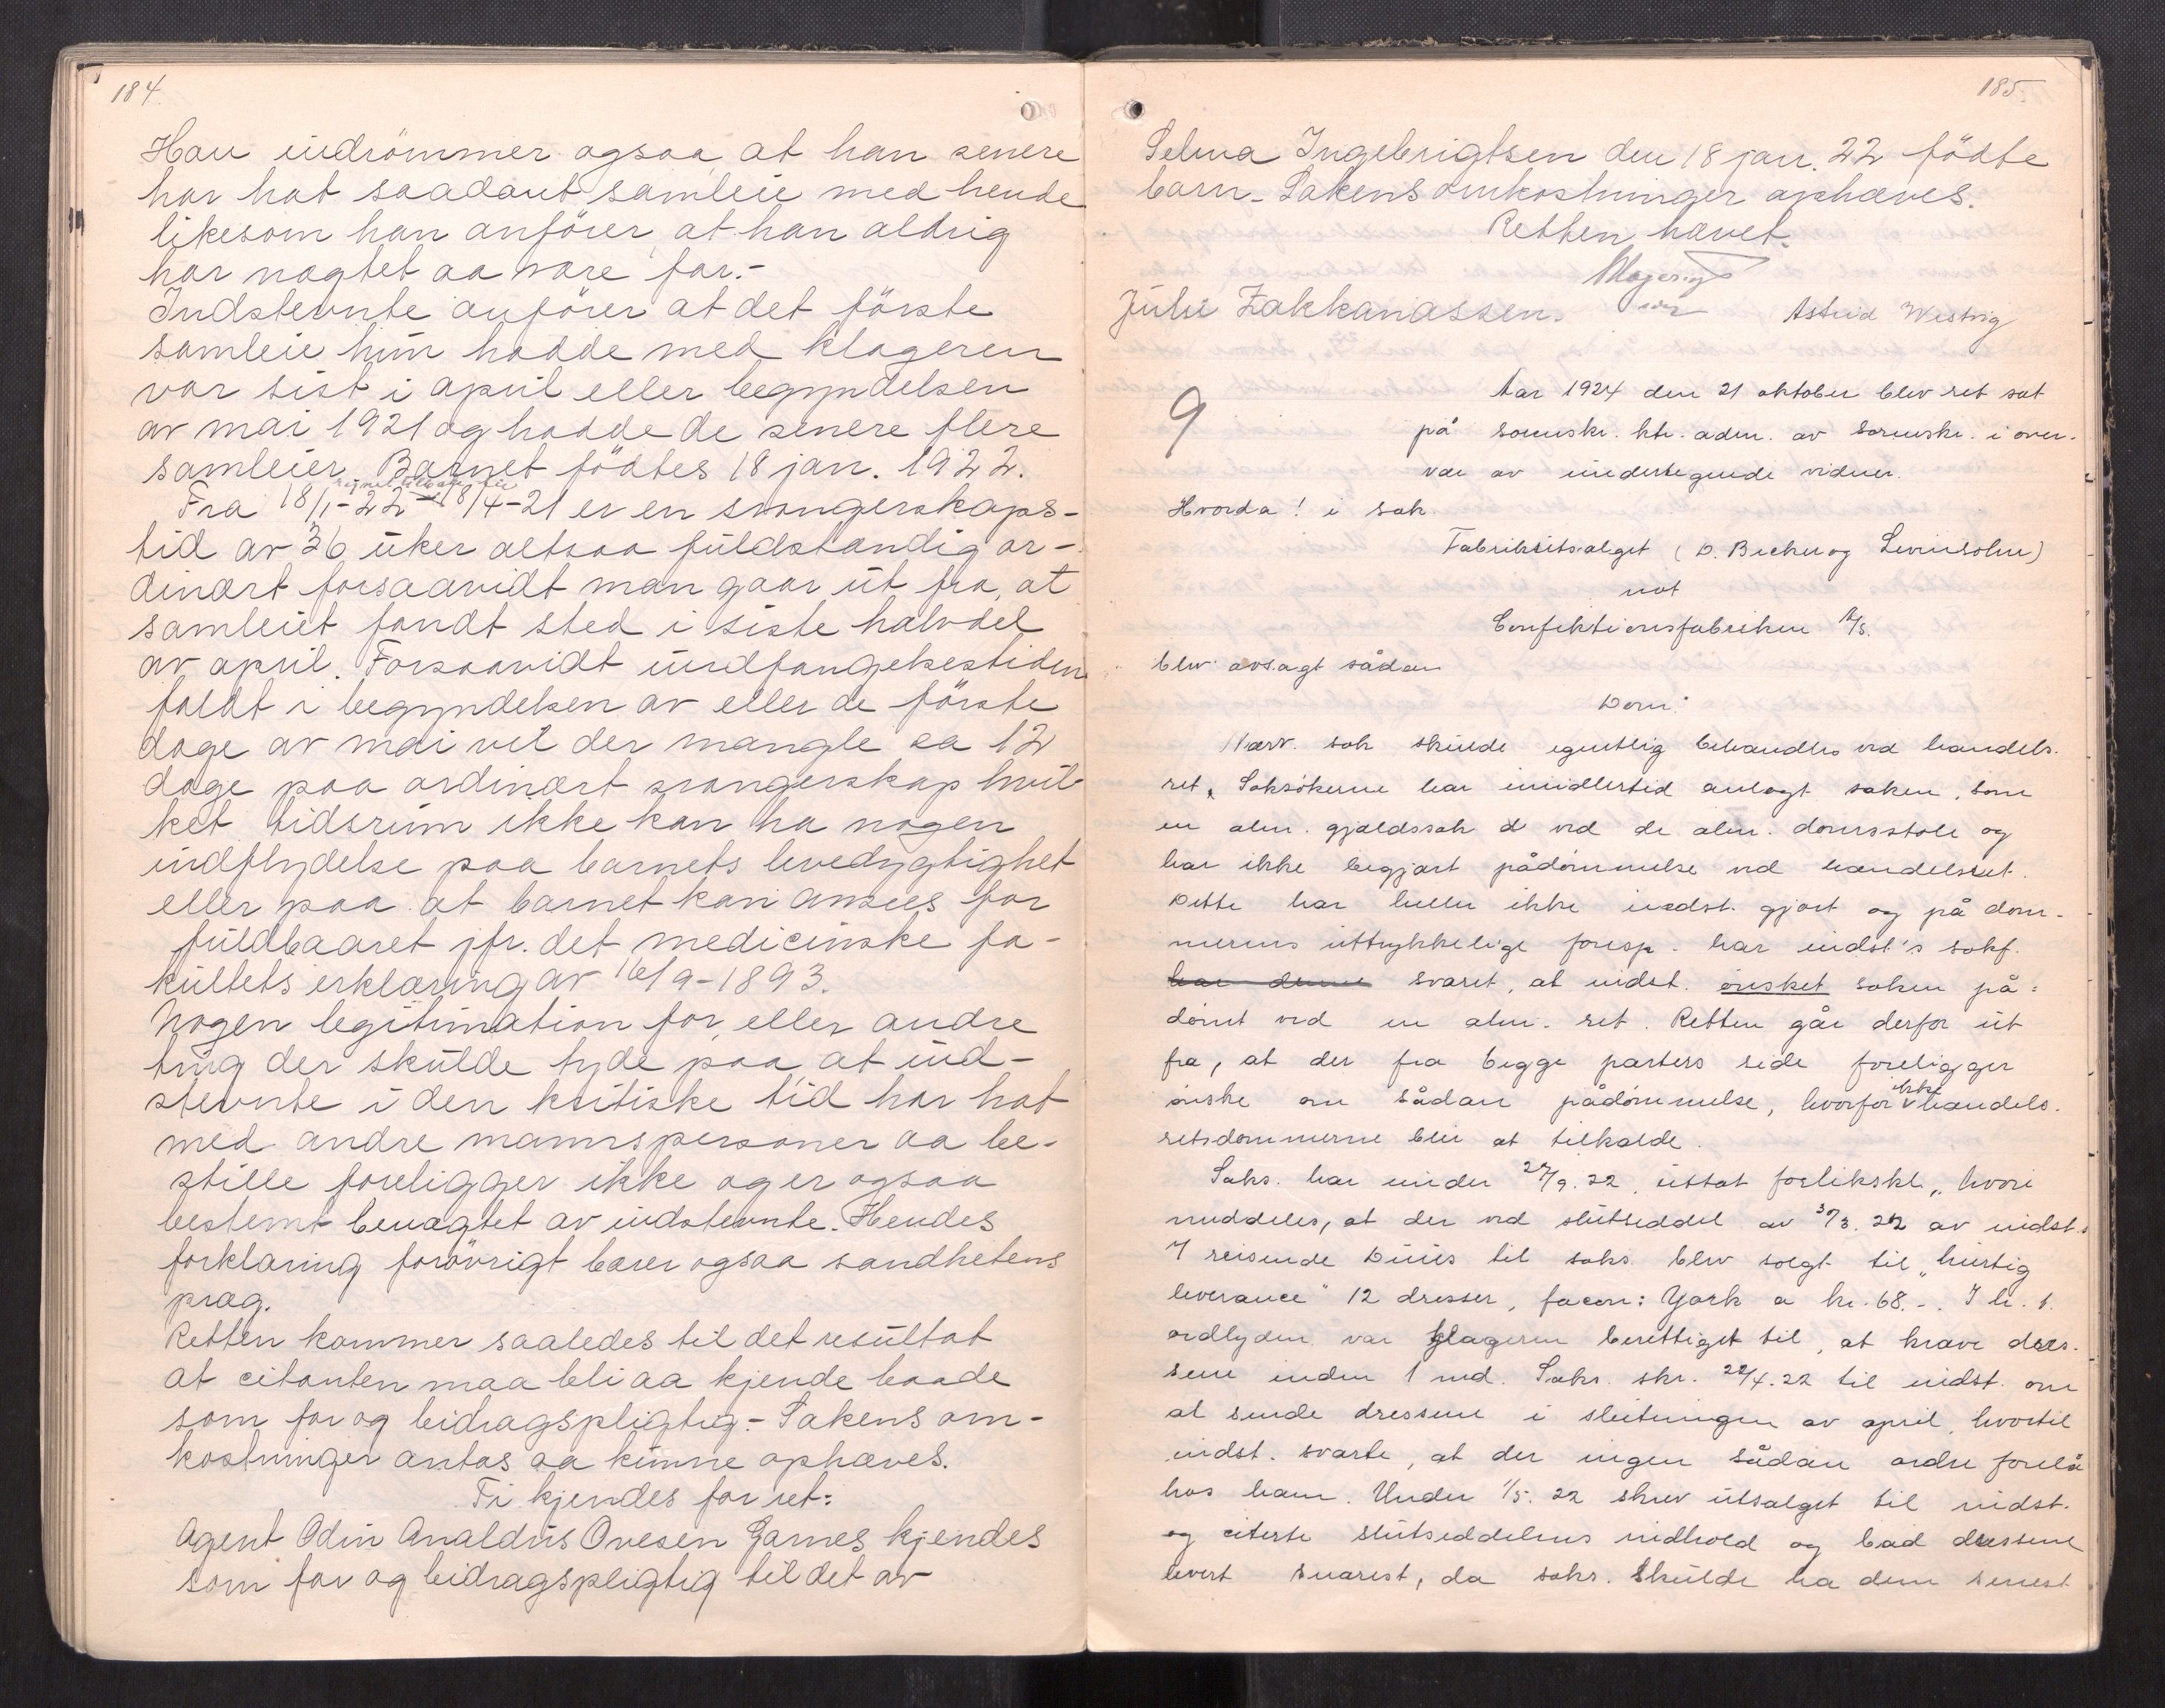 184.
Han indrömmer ogsaa at han senere
har hat saadant samleie med hende
likesom han anförer, at han aldrig
har nægtet aa være far.-
Indstevnte anförer at det förste
samleie hun hadde med klageren
var sist i april eller begyndelsen
av mai 1921 og hadde de senere flere
samleier. Barnet födtes 18 jan. 1922.
Fra 18/1-22 regnet tilbage til 18/4-21 er en svangerskaps-
tid av 36 uker altsaa fuldstændig or-
dinært forsaavidt man gaar ut fra, at
samleiet fandt sted i siste halvdel
av april. Forsaavidt undfangelsestiden
faldt i begyndelsen av eller de förste
dage av mai vil der mangle ca 12
dage paa ordinært svangerskap hvil-
ket tidsrum ikke kan ha nogen
indflydelse paa barnets levedygtighet
eller paa at barnet kan ansees for
fuldbaaret jfr. det medicinske fa-
kultets erklæring av 16/9-1893.
Nogen legitimation for, eller andre
ting der skulde tyde paa, at ind-
stevnte i den kritiske tid har hat
med andre mannspersoner aa be-
stille foreligger ikke og er ogsaa
bestemt benægtet av indstevnte. Hendes
forklaring forövrigt bærer ogsaa sandhetens
præg.
Retten kommer saaledes til det resultat
at citanten maa bli aa kjende baade
som far og bidragspligtig.- Sakens om-
kostninger antas aa kunne ophæves.
Ti kjendes for ret:
Agent Odin Analdus Ovesen Garnes kjendes
som far og bidragspligtig til det av
185.
Selma Ingebrigtsen den 18 jan. 22 födte
barn. Sakens omkostninger ophæves.
Retten hævet.
Julie Zakkariassen. Astrid Westvig
9
Aar 1924 den 21 oktober blev ret sat
på sorenskr. ktr. adm. av sorenskr. i over-
vær av undertegnede vidner.
Hvorda! i sak
Fabrikutsalget (D. Becker og Levinsohn)
mot
Confektionsfabriken A/S.
blev avsagt sådan
Dom:
Nærv. sak skulde egentlig behandles ved handels-
ret, Saksökerne har imidlertid anlagt saken, som
en alm. gjældssak ved de alm. domsstole og
har ikke begjært pådömmelse ved handelsret.
Dette har heller ikke indst. gjort og på dom-
merens uttrykkelige foresp. har indst's sakf.
har denne svaret, at indst. önsket saken på-
dömt ved en alm. ret. Retten går derfor ut
fra, at der fra begge parters side foreligger
önske om sådan pådömmelse, hvorfor ikke handels-
retsdommerne blir at tilkalde.
Saks. har under 27/9.22, uttat forlikskl., hvori
meddeles, at der ved slutseddel av 3/3.22 av indst.s
reisende Duus til saks. blev solgt til "hurtig
leverance" 12 dresser, facon: York a kr. 68.-. I h. t.
ordlyden var klageren berettiget til, at kræve dres-
sene inden 1 md. Saks. skr. 22/4.22 til indst. om
at sende dressene i slutningen av april, hvortil
indst. svarte, at der ingen sådan ordre forelå
hos ham. Under 1/5.22 skrev utsalget til indst.
og citerte slutseddelens indhold og bad dressene
levert snarest, da saks. skulde ha dem senest